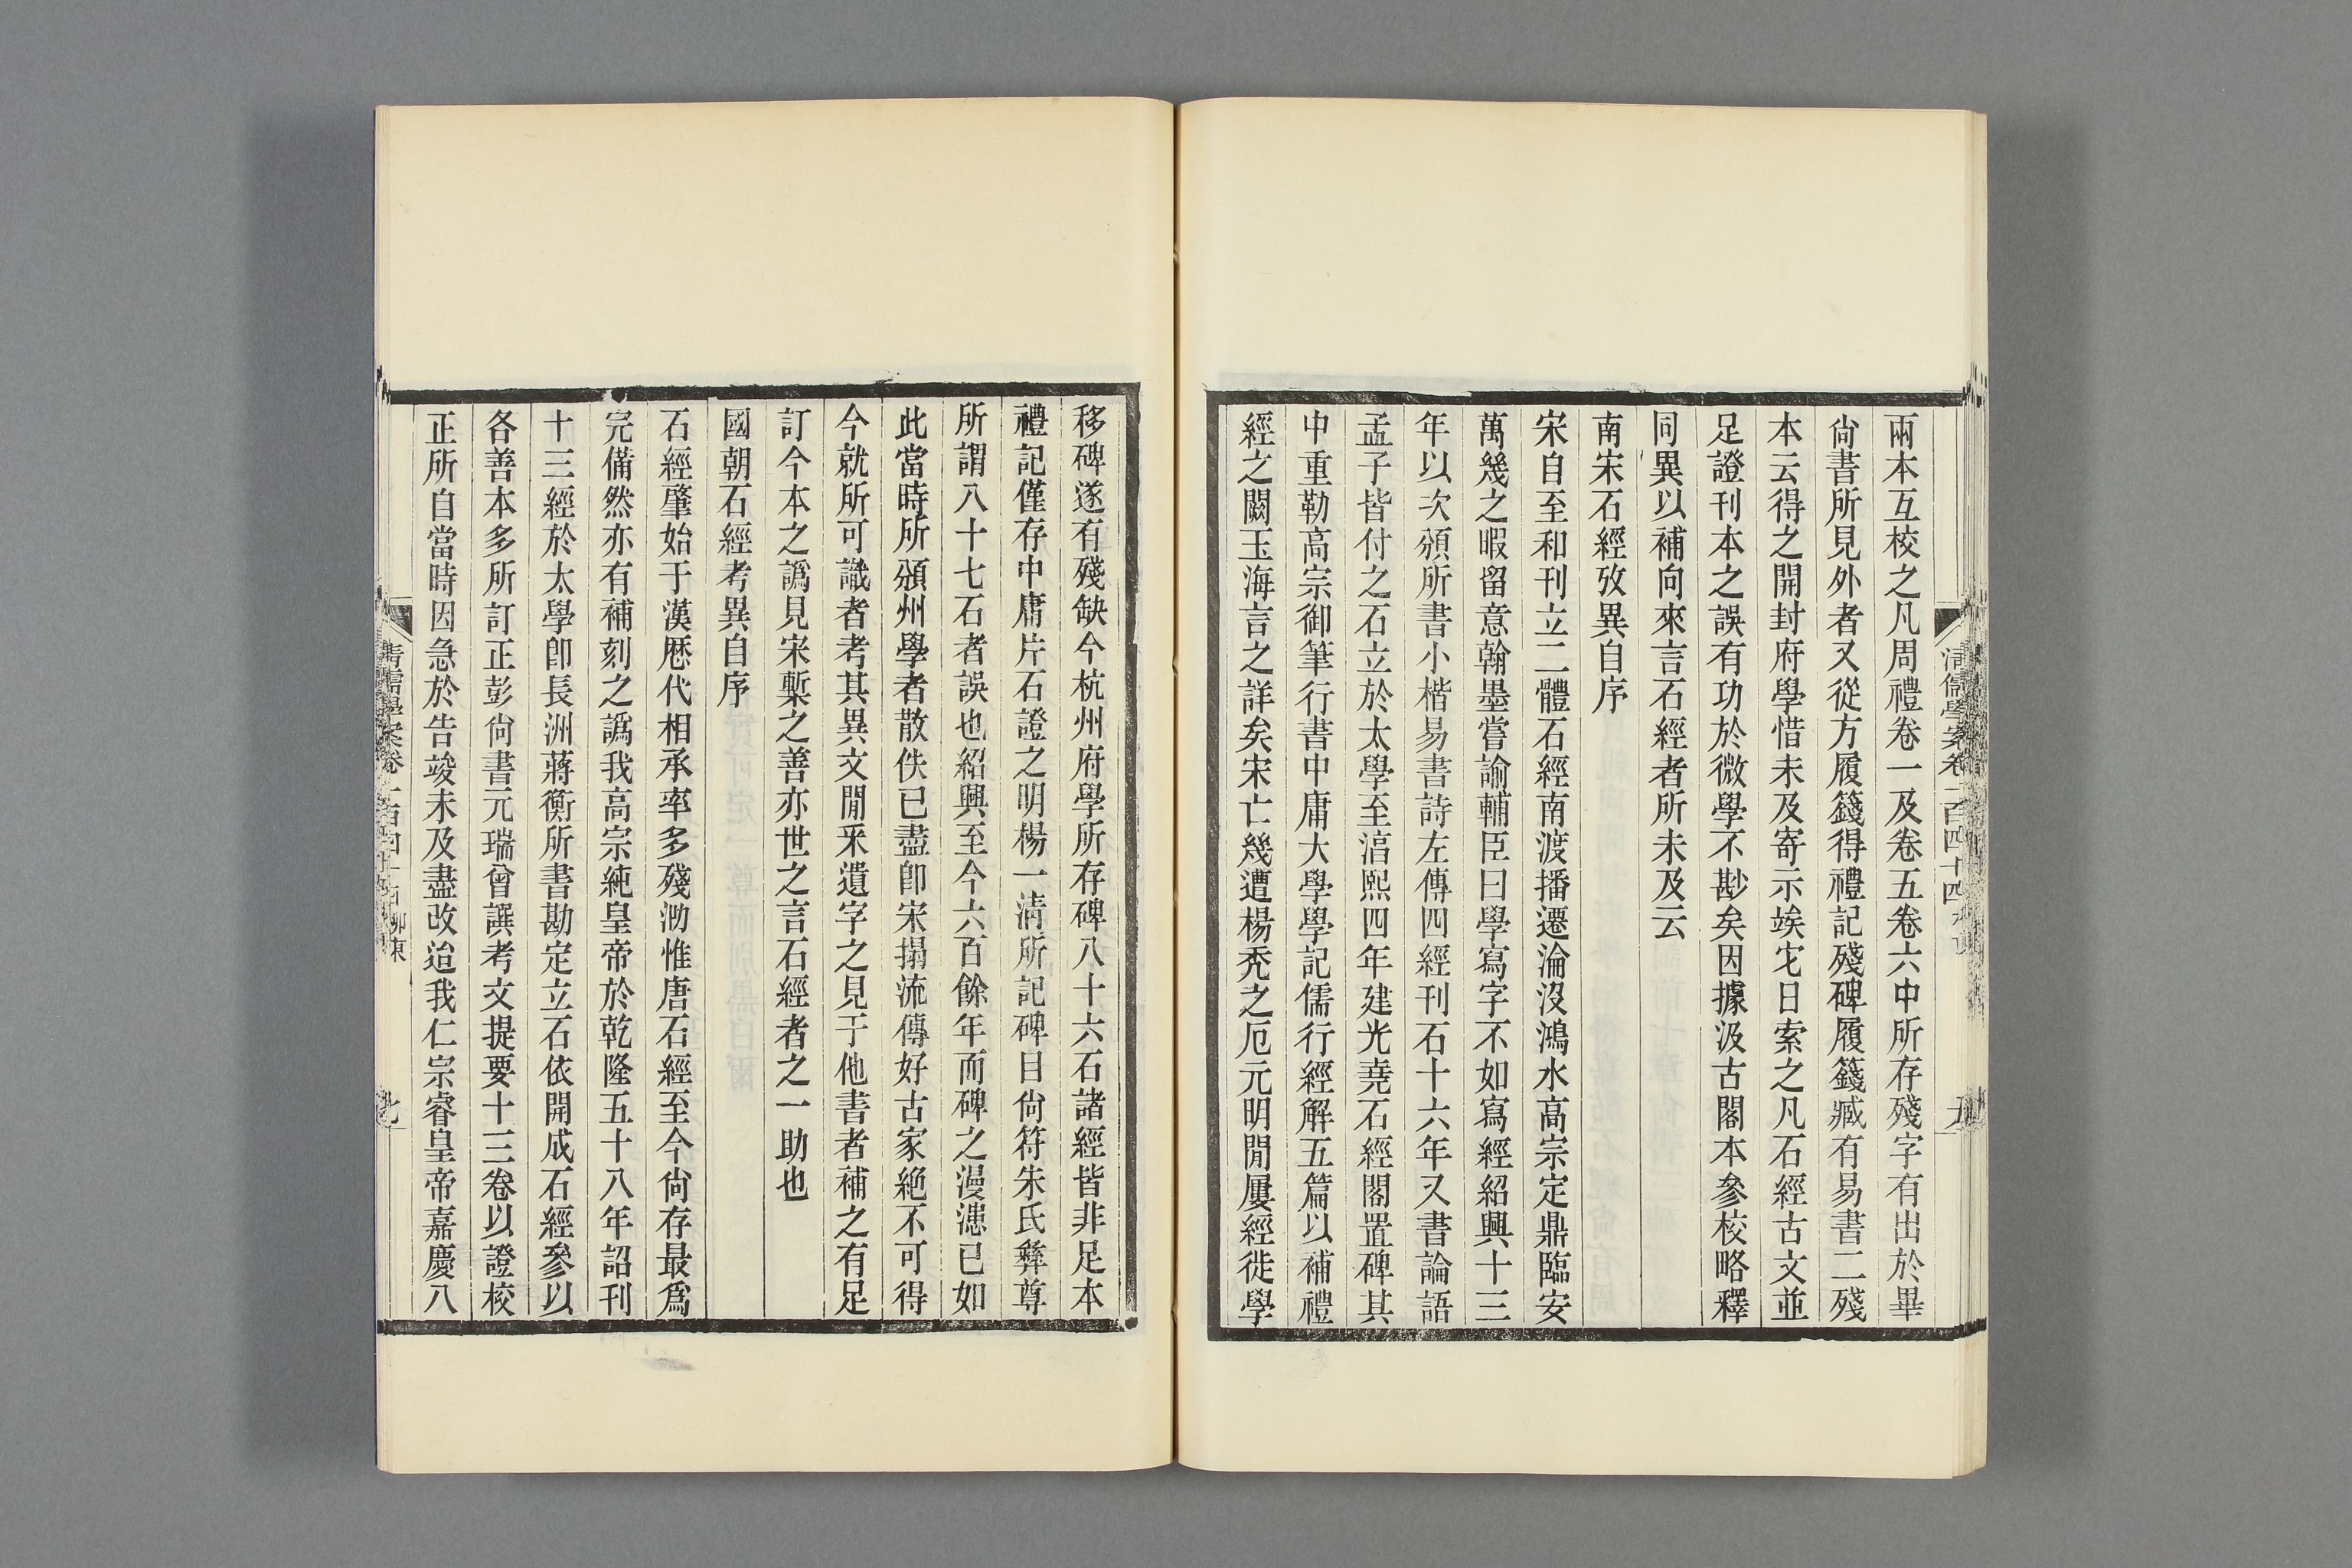 兩本互校之凡周禮卷一及卷五卷六中所存殘字有出於畢
尙書所見外者又從方履籛得禮記殘碑履籛臧有易書二殘
本云得之開封府學惜未及寄示竢它日索之凡石經古文並
足證刊本之誤有功於微學不尠矣因據汲古閣本參校略釋
同異以補向來言石經者所未及云
南宋石經攷異自序
宋自至和刊立二體石經南渡播遷淪沒鴻水高宗定鼎臨安
萬幾之暇留意翰墨嘗諭輔臣曰學寫字不如寫經紹興十三
年以次頒所書小楷易書詩左傳四經刊石十六年又書論語
孟子皆付之石立於太學至淳熙四年建光堯石經閣置碑其
中重勒高宗御筆行書中庸大學學記儒行經解五篇以補禮
經之闕玉海言之詳矣宋亡幾遭楊禿之厄元明閒屢經徙學
移碑遂有殘缺今杭州府學所存碑八十六石諸經皆非足本
禮記僅存中庸片石證之明楊一清所記碑目尙符朱氏彝尊
所謂八十七石者誤也紹興至今六百餘年而碑之漫漶已如
此當時所頒州學者散佚已盡卽宋搨流傳好古家絶不可得
今就所可識者考其異文閒釆遺字之見于他書者補之有足
訂今本之譌見宋槧之善亦世之言石經者之一助也
國朝石經考異自序
石經肇始于漢厯代相承率多殘泐惟唐石經至今尙存最爲
完備然亦有補刻之譌我高宗純皇帝於乾隆五十八年詔刊
十三經於太學卽長洲蔣衡所書勘定立石依開成石經參以
各善本多所訂正彭尙書元瑞曾譔考文提要十三卷以證校
正所自當時因急於告竣未及盡改迨我仁宗睿皇帝嘉慶八
清儒學案卷一百四十四 柳東